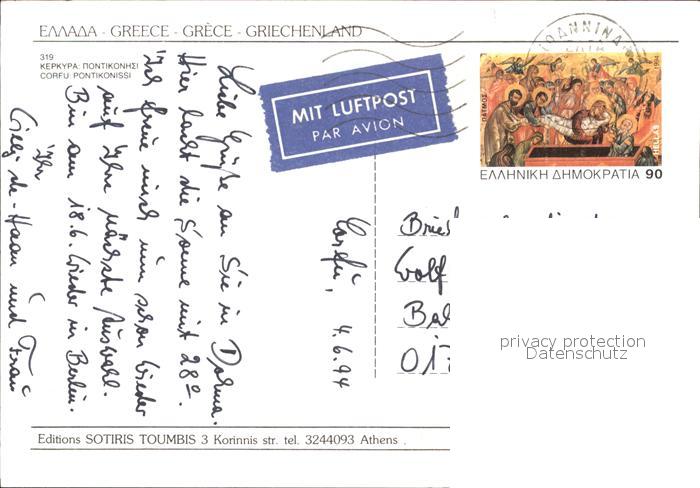 ΕΛΛΑΔΑ - GREECE - GRÈCE - GRIECHENLAND
319
ΚΕΡΚΥΡΑ: ΠΟΝΤΙΚΟΝΗΣΙ
CORFU PONTIKONISSI
MIT LUFTPOST
PAR AVION
ΙΩΑΝΝΙΝΑ
1994
ΠΑΤΜΟΣ
HELLAS
ΕΛΛΗΝΙΚΗ ΔΗΜΟΚΡΑΤΙΑ 90
Corfu, 4.6.94
Liebe Grüße an Sie in Dorma.
Hier lacht die Sonne mit 28°.
Ich freue mich nun schon wieder
auf Ihre nächste Auswahl.
Bin am 18.6. wieder in Berlin.
Ihr
de-Haan und Frau
Brief
Wolf
Ba
017
privacy protection
Datenschutz
Editions SOTIRIS TOUMBIS 3 Korinnis str. tel. 3244093 Athens .